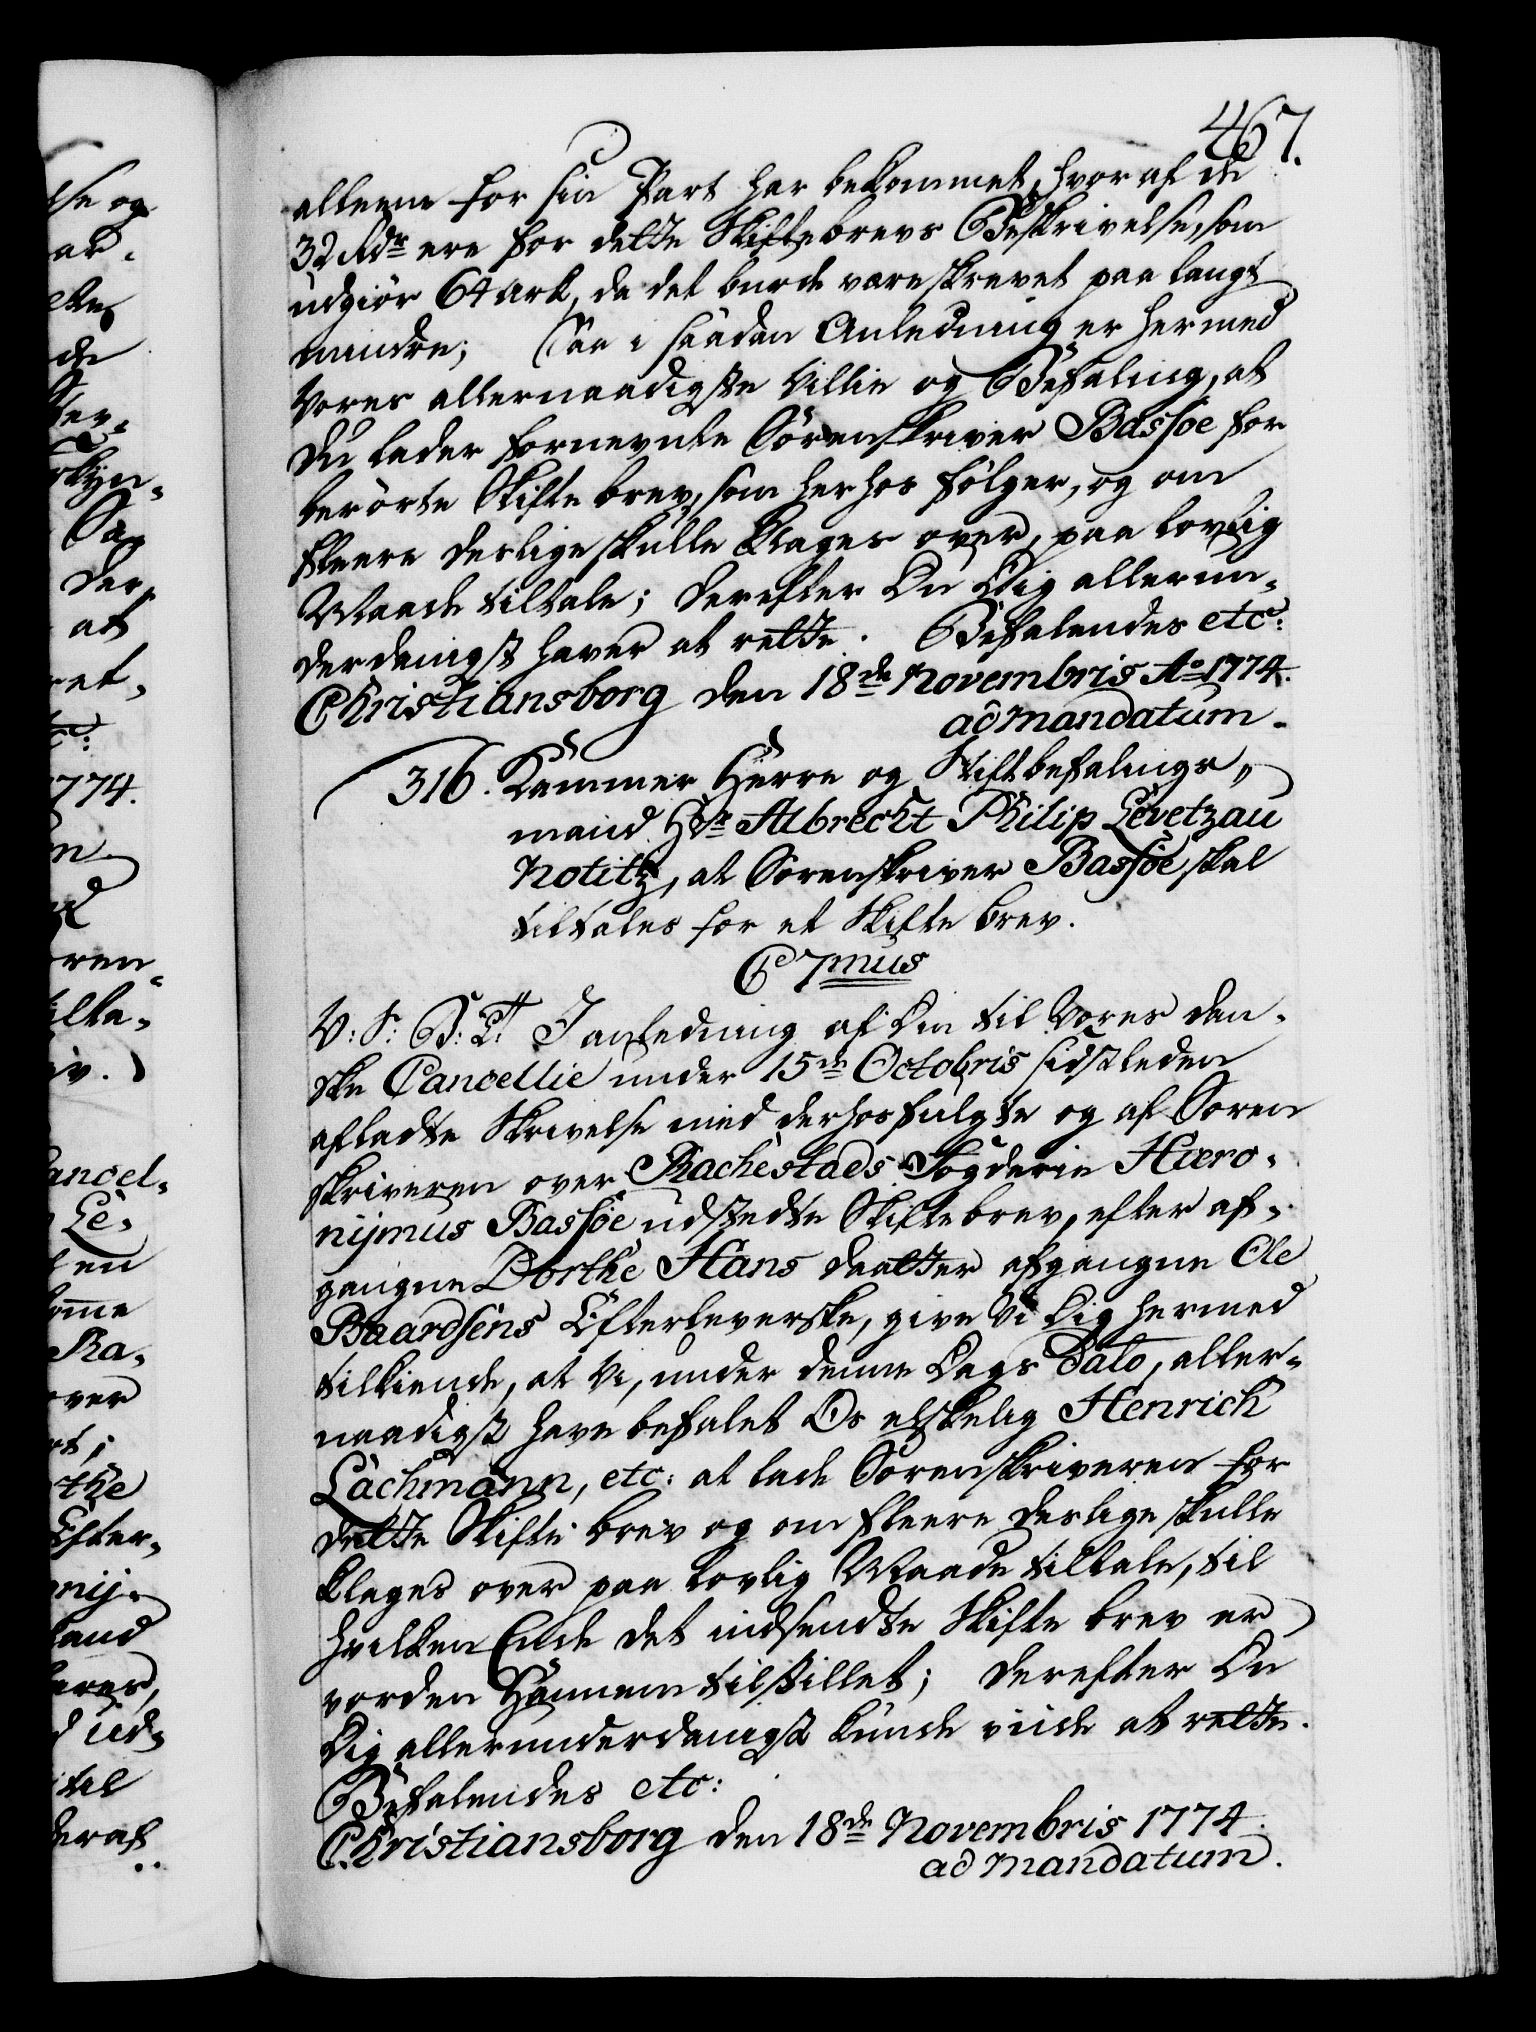 467.
alleene for sin Part har bekommet, hvoraf de
32 Rdr ere for dette Skiftebrevs Beskrivelse, som
udgiør 64 Ark, da det burde være skrevet paa langt
mindre; Saa i saadan Anledning er hermed
Vores allernaadigste Villie og Befaling, at
Du lader fornevnte Sörenskriver Bassöe for
berörte Skifte brev, som herhos fölger, og om
fleere deslige skulle klages over, paa lovlig
Maade tiltale; derefter Du Dig allerun-
derdanigst haver at rette. Befalendes etc:
Christiansborg den 18de Novembris Ao 1774.
ad Mandatum.
316. Kammer Herre og Stiftbefalings-
mand Hr Albrecht Philip Levetzau
Notitz, at Sorenskriver Bassöe skal
tiltales for et Skifte brev.
C 7mus
V: S: G: T: I anledning af Din til Vores dan-
ske Cancellie under 15de Octobris sidstleden
afladte Skrivelse med derhosfulgte og af Soren
skriveren over Rachestads Fogderie Hiero-
nijmus Bassöe udstedte Skiftebrev, efter af-
gangne Dorthe Hans daatter afgangne Ole
Baardsens Efterleverske, give Vi Dig hermed
tilkiende, at Vi, under denne Dags Dato, aller-
naadigst have befalet Os elskelig Henrich
Lachmann, etc: at lade Sorenskriveren for
dette Skifte brev og om fleere deslige skulle
klages over paa lovlig Maade tiltale, til
hvilken Ende det indsendte Skifte brev er
vorden Hannem tilstillet; derefter Du
Dig allerunderdanigst kunde viide at rette.
Befalendes etc:
Christiansborg den 18de Novembris 1774.
ad Mandatum.